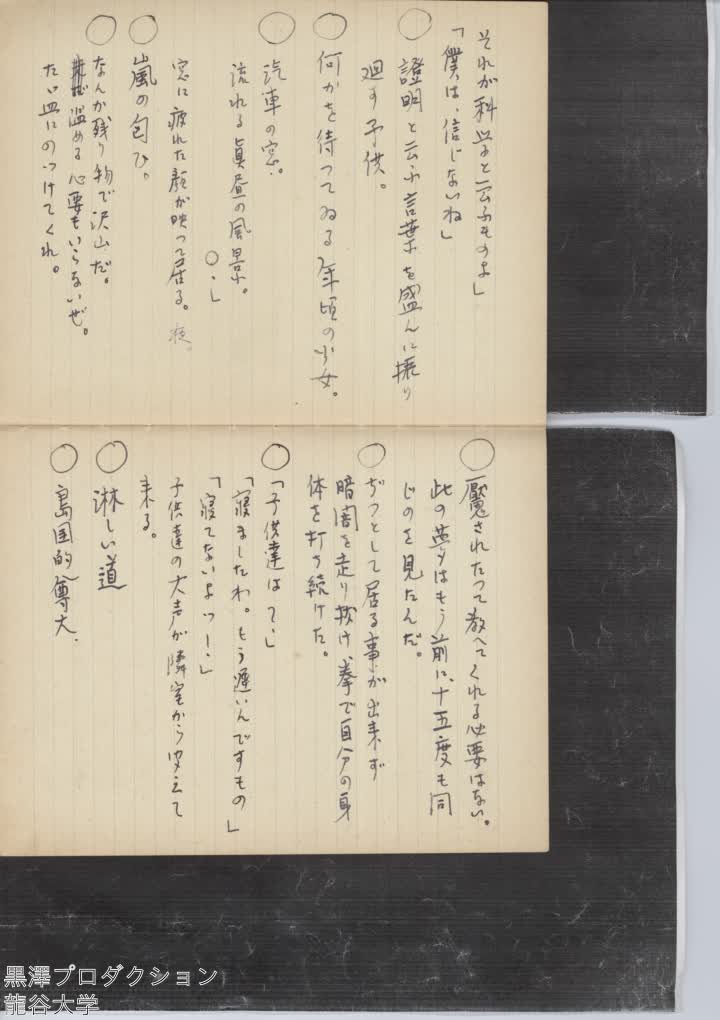 それが科学と云ふものよ」
「僕は、信じないね」
○ 證明と云ふ言葉を盛んに振り
廻す子供。
○ 何かを待つてゐる年頃の少女。
○ 汽車の窓。
流れる眞昼の風景。
○、」
窓に疲れた顔が映って居る。夜。
○ 嵐の匂ひ。
○ なんか残り物で沢山だ。
温める必要もいらないぜ。
たゞ皿にのつけてくれ。
○ 魘されたつて教へてくれる必要はない。
此の夢はもう前に、十五度も同
じのを見たんだ。
○ ぢつとして居る事が出来ず
暗闇を走り抜け、拳で自分の身
体を打ち続けた。
○ 「子供達は?、」
「寝ましたわ。もう遅いんですもの」
「寝てないよッー、」
子供達の大声が隣室から聞えて
来る。
○ 淋しい道
○ 島国的尊大、
黒澤プロダクション
龍谷大学